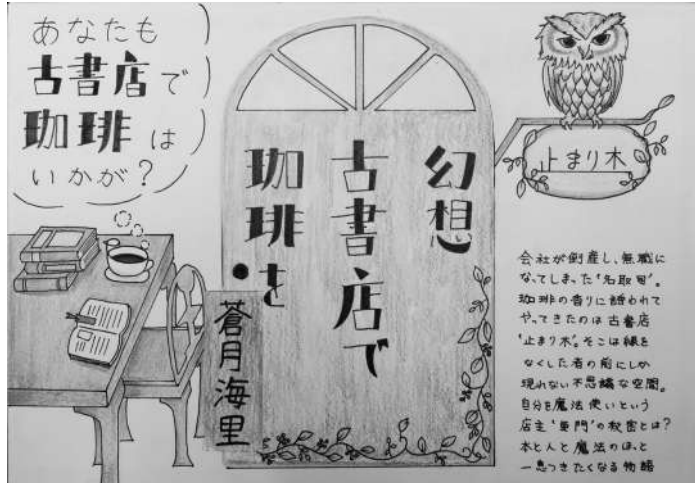 あなたも
古書店で
珈琲は
いかが?
幻想
古書店で
珈琲を
蒼月海里
止まり木
会社が倒産し、無職に
なってしまった‘名取司’。
珈琲の香りに誘われて
やってきたのは古書店
‘止まり木’。そこは縁を
なくした者の前にしか
現れない不思議な空間。
自分を魔法使いという
店主‘亜門’の秘密とは?
本と人と魔法のほっと
一息つきたくなる物語